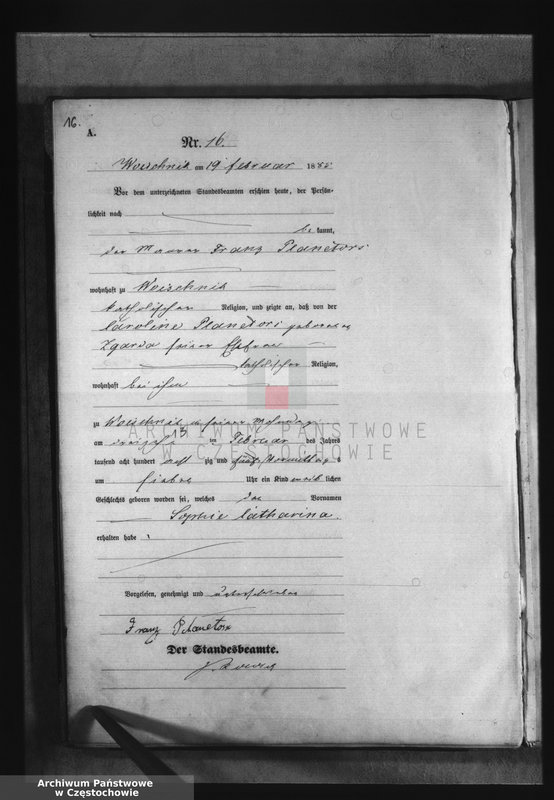 16.
A.
Nr. 16.
Woischnik am 19 Februar 1888
Vor dem unterzeichneten Standesbeamten erschien heute, der Persön-
lichkeit nach
be kannt,
der Maurer Franz Planetorz
wohnhaft zu Woischnik
katholischer Religion, und zeigte an, daß von der
Caroline Planetorz geborenen
Zgarda seiner Ehefrau
katholischer Religion,
wohnhaft bei ihm
zu Woischnik in seiner Wohnung
am 13 ten Februar des Jahres
tausend acht hundert acht zig und Vormittag s
um sieben Uhr ein Kind weib lichen
Geschlechts geboren worden sei, welches die Vornamen
Sophie Catharina
erhalten habe
Vorgelesen, genehmigt und unterschrieben
Franz Planetorz
Der Standesbeamte.
ARCHIWUM PAŃSTWOWE
W CZĘSTOCHOWIE
Archiwum Państwowe
w Częstochowie